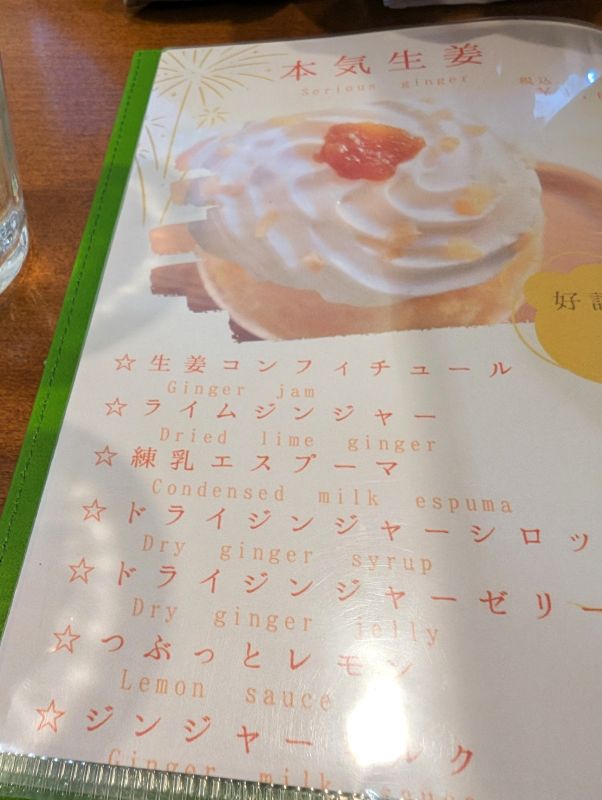 本気生姜
Serious ginger
税込
好
☆生姜コンフィチュール
Ginger jam
☆ライムジンジャー
Dried lime ginger
☆練乳エスプーマ
Condensed milk espuma
☆ドライジンジャーシロッ
Dry ginger syrup
☆ドライジンジャーゼリー
Dry ginger jelly
☆つぶっとレモン
Lemon sauce
☆ジンジャーミルク
Ginger milk sauce